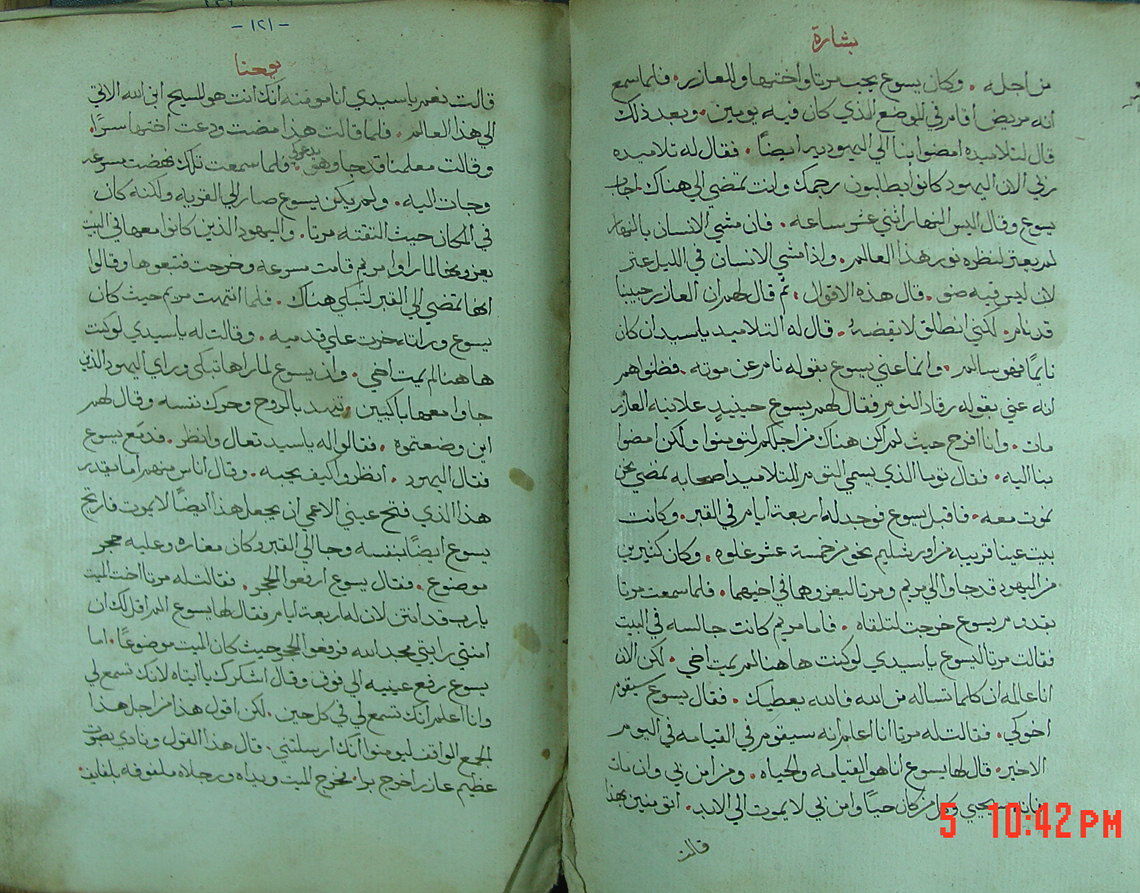 بشارة
من اجله . وكان يسوع يحب مرتا واختها والعازر . فلما سمع
انه مريض اقام في الموضع الذي كان فيه يومين . وبعد ذلك
قال لتلاميذه امضوا بنا الي اليهوديه ايضًا . فقال له تلاميذه
ربي الان اليهود كانوا يطلبون رجمك وانت تمضي الي هناك اجاب
يسوع وقال اليس النهار اثنتي عشر ساعه . فان مشي الانسان بالنهار
لم يعثر لنظره نور هذا العالم . واذا مشي الانسان في الليل عثر
لان ليس فيه ضو . قال هذه الاقوال . ثم قال لهم ان العازر حبيبنا
قد نام . لكني انطلق لايقضه . قال له التلاميد ياسيد ان كان
نايمًا فهو سالم . وانما عني يسوع بقوله نام عن موته . فظنوا هم
انه عني بقوله رقاد النوم فقال لهم يسوع حينيدٍ علانيه العازر
مات . وانا افرح حيث لم اكن هناك من اجلكم لتومنوا ولكن امضوا
بنا اليه . فقال توما الذي يسمي التوم للتلاميد اصحابه نمضي نحن
نموت معه . فاقبل يسوع فوجد له اربعة ايام في القبر . وكانت
بيت عنيا قريبه من اورشليم نحو من خمسة عشر غلوه . وكان كثيرين
من اليهود قد جاوا الي مريم ومرتا ليعزوها في اخيهما . فلما سمعت مرتا
بقدوم يسوع خرجت لتلقاه . فاما مريم كانت جالسه في البيت
فقالت مرتا ليسوع ياسيدي لو كنت هاهنا لم يمت اخي . لكن الان
انا عالمه ان كلما تساله من الله فالله يعطيك . فقال يسوع سيقوم
اخوكي . فقالت له مرتا انا اعلم انه سيقوم في القيامه في اليوم
الاخير . قال لها يسوع انا هو القيامه والحياه . ومن امن بي وان مات
فانه سيحيي وكل من كان حيًا وامن بي لا يموت الي الابد . اتومنين بهذا
قالت
5 10:42 PM
- ١٢١ -
يوحنا
قالت نعم ياسيدي انا مومنه انك انت هو المسيح ابن الله الاتي
الي هذا العالم . فلما قالت هذا مضت ودعت اختها سرًا .
وقالت معلمنا قد جا وهو يدعوكي . فلما سمعت تلك نهضت بسوعه
وجات اليه . ولم يكن يسوع صار الي القريه ولكنه كان
في المكان حيث التقته مرتا . واليهود الذين كانوا معها في البيت
يعزونها لما راوا مريم قامت بسوعه وخرجت فتبعوها وقالوا
انها تمضي الي القبر لتبكي هناك . فلما انتهت مريم حيث كان
يسوع وراته خرت علي قدميه . وقالت له ياسيدي لو كنت
هاهنا لم يمت اخي . وان يسوع لما راها تبكي وراي اليهود الذين
جاوا معها باكيين . تنهد بالروح وحرك نفسه وقال لهم
اين وضعتموه . فقالوا له ياسيد تعال وانظر . فدمع يسوع
فقال اليهود . انظروا كيف يحبه . وقال اناس منهم اما يقدر
هذا الذي فتح عيني الاعمي ان يجعل هذا ايضًا لا يموت فارتج
يسوع ايضًا بنفسه وجا الي القبر وكان مغاره وعليه حجر
موضوع . فقال يسوع ارفعوا الحجر . فقالت له مرتا اخت الميت
يارب قد انتن لان له اربعة ايام فقال لها يسوع الم اقل لك ان
امنتي رايتي مجد الله فرفعوا الحجر حيث كان الميت موضوعًا . اما
يسوع رفع عينيه الي فوق وقال اشكرك يا ابتاه لانك تسمع لي
وانا اعلم انك تسمع لي في كل حين . لكن اقول هذا من اجل هذا
الجمع الواقف ليومنوا انك ارسلتني . قال هذا القول ونادي بصوت
عظيم عازر اخرج برا . فخرج الميت ويداه ورجلاه ملفوفه بلفايف .